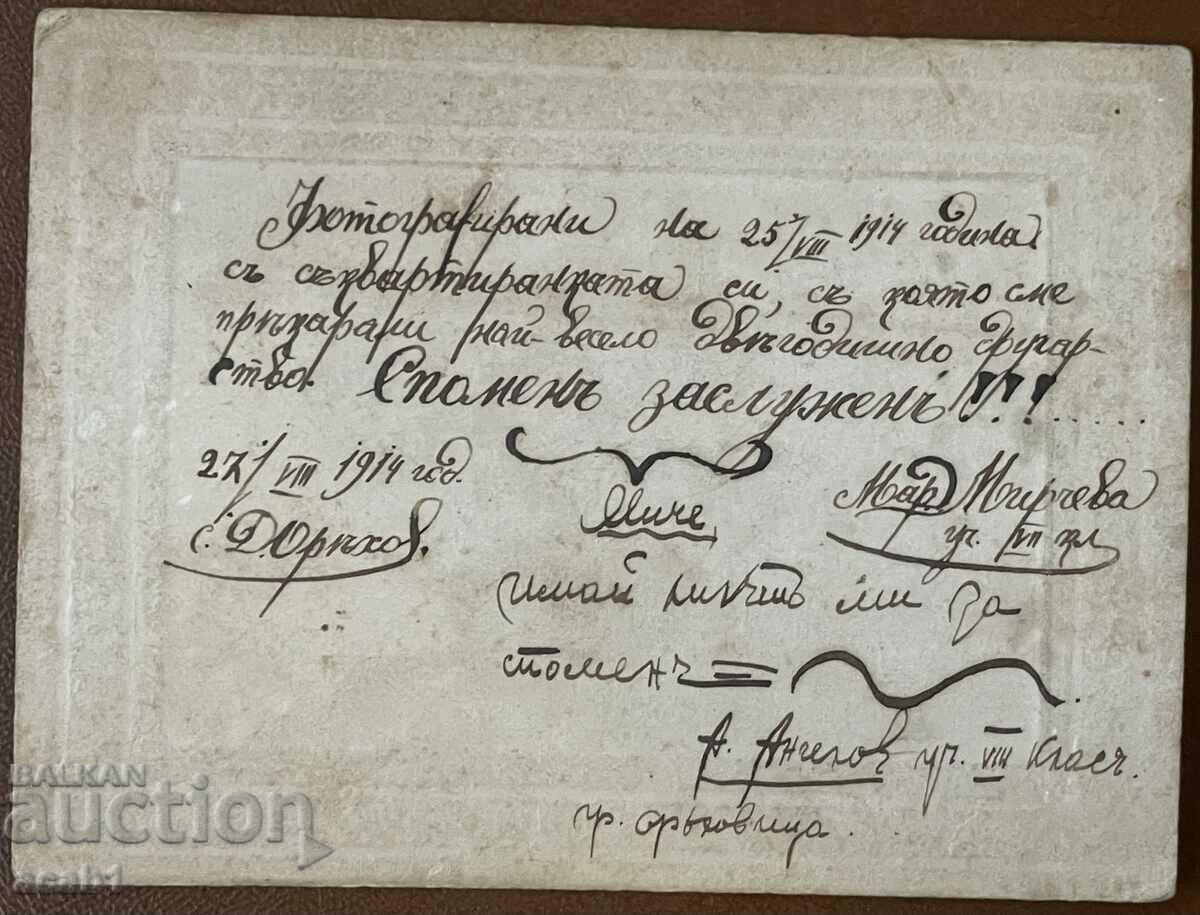 Фотографирани на 25/VIII 1914 година
съ съквартиранката си, съ която сме
прѣкарали най-весело двѣгодишно другар-
ство. Споменъ заслуженъ!!!......
27/VIII 1914 год.
с. Д. Орѣхов.
Миче
Мар. Мирчева
уч. VII кл
имай ми за
споменъ =
А. Ангелов уч. VIII класъ.
гр. орѣховица.
BALKAN
auction
acab1